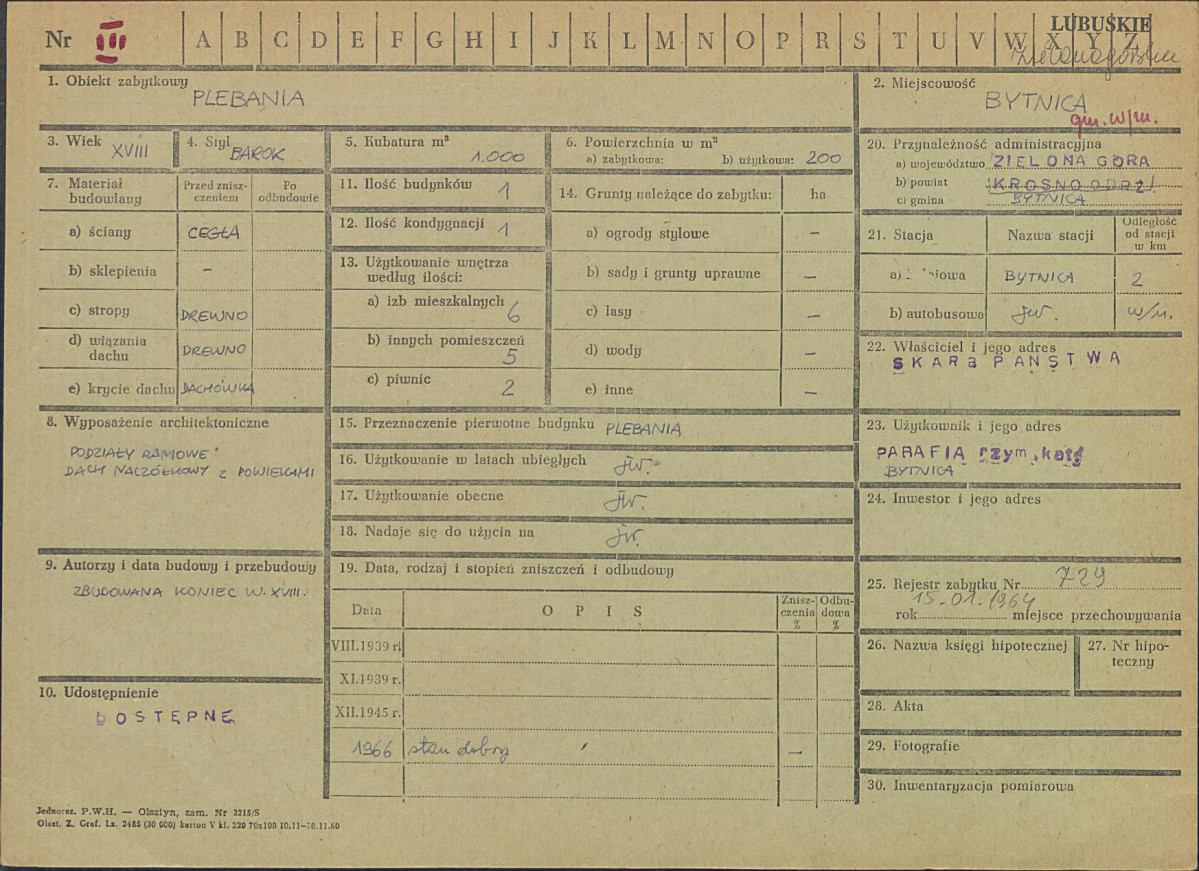 Nr III A B C D E F G H I J K L M N O P R S T U V W X Y Z
LUBUSKIE
Zielonogórskie
1. Obiekt zabytkowy
PLEBANIA
2. Miejscowość
BYTNICA
gm. w/m.
3. Wiek XVIII
4. Styl BAROK
5. Kubatura m³
1.000
6. Powierzchnia w m²
a) zabytkowa: b) użytkowa: 200
20. Przynależność administracyjna
a) województwo ZIELONA GÓRA
b) powiat KROSNO ODRZ.
c) gmina BYTNICA
7. Materiał budowlany
Przed zniszczeniem
Po odbudowie
a) ściany CEGŁA
b) sklepienia –
c) stropy DREWNO
d) wiązania dachu DREWNO
e) krycie dachu DACHÓWKA
11. Ilość budynków 1
12. Ilość kondygnacji 1
13. Użytkowanie wnętrza
według ilości:
a) izb mieszkalnych 6
b) innych pomieszczeń 5
c) piwnic 2
14. Grunty należące do zabytku: ha
a) ogrody stylowe –
b) sady i grunty uprawne –
c) lasy –
d) wody –
e) inne –
21. Stacja Nazwa stacji Odległość od stacji w km
a) BYTNICA 2
b) autobusowa jw. w/m.
22. Właściciel i jego adres
SKARB PAŃSTWA
8. Wyposażenie architektoniczne
PODZIAŁY RAMOWE
DACH NACZÓŁKOWY z POWIEKAMI
15. Przeznaczenie pierwotne budynku PLEBANIA
16. Użytkowanie w latach ubiegłych jw.
17. Użytkowanie obecne jw.
18. Nadaje się do użycia na jw.
23. Użytkownik i jego adres
PARAFIA rzym. kat.
BYTNICA
24. Inwestor i jego adres
9. Autorzy i data budowy i przebudowy
ZBUDOWANA KONIEC W. XVIII.
10. Udostępnienie
DOSTĘPNE
19. Data, rodzaj i stopień zniszczeń i odbudowy
Data OPIS Zniszczenia % Odbudowa %
VIII.1939 r.
XI.1939 r.
XII.1945 r.
1966 stan dobry –
25. Rejestr zabytku Nr 729
15.01.1964
rok miejsce przechowywania
26. Nazwa księgi hipotecznej
27. Nr hipoteczny
28. Akta
29. Fotografie
30. Inwentaryzacja pomiarowa
Jednoraz. P.W.H. — Olsztyn, zam. Nr 3215/S
Olszt. Z. Graf. Lz. 2485 (30 000) karton V kl. 220 70x100 10.11—30.11.60